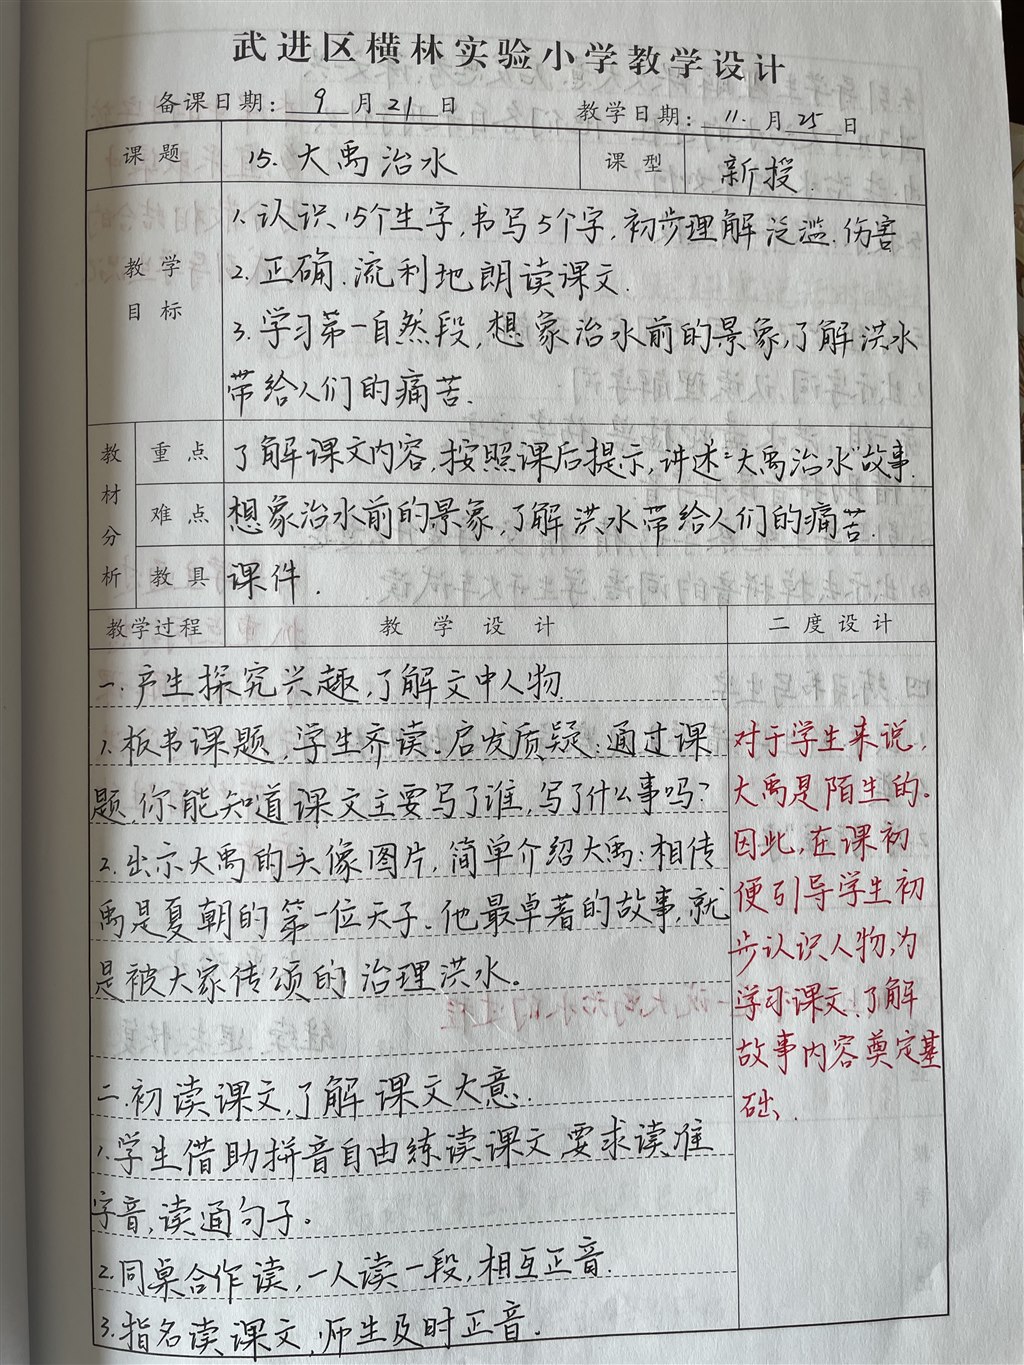 武进区横林实验小学教学设计
备课日期：9月21日 教学日期：11.月25日
课题 15.大禹治水 课型 新授.
教学目标
1.认识15个生字,书写5个字,初步理解泛滥.伤害
2.正确.流利地朗读课文.
3.学习第一自然段,想象治水前的景象,了解洪水
带给人们的痛苦.
教材分析
重点 了解课文内容,按照课后提示,讲述“大禹治水”故事.
难点 想象治水前的景象,了解洪水带给人们的痛苦.
教具 课件.
教学过程 教学设计 二度设计
一.产生探究兴趣,了解文中人物
1.板书课题,学生齐读.启发质疑:通过课
题,你能知道课文主要写了谁,写了什么事吗?
2.出示大禹的头像图片,简单介绍大禹:相传
禹是夏朝的第一位天子.他最卓著的故事,就
是被大家传颂的治理洪水。
二.初读课文,了解课文大意.
1.学生借助拼音自由练读课文,要求读准
字音,读通句子。
2.同桌合作读,一人读一段,相互正音.
3.指名读课文,师生及时正音.
对于学生来说,
大禹是陌生的。
因此,在课初
便引导学生初
步认识人物,为
学习课文.了解
故事内容奠定基
础.